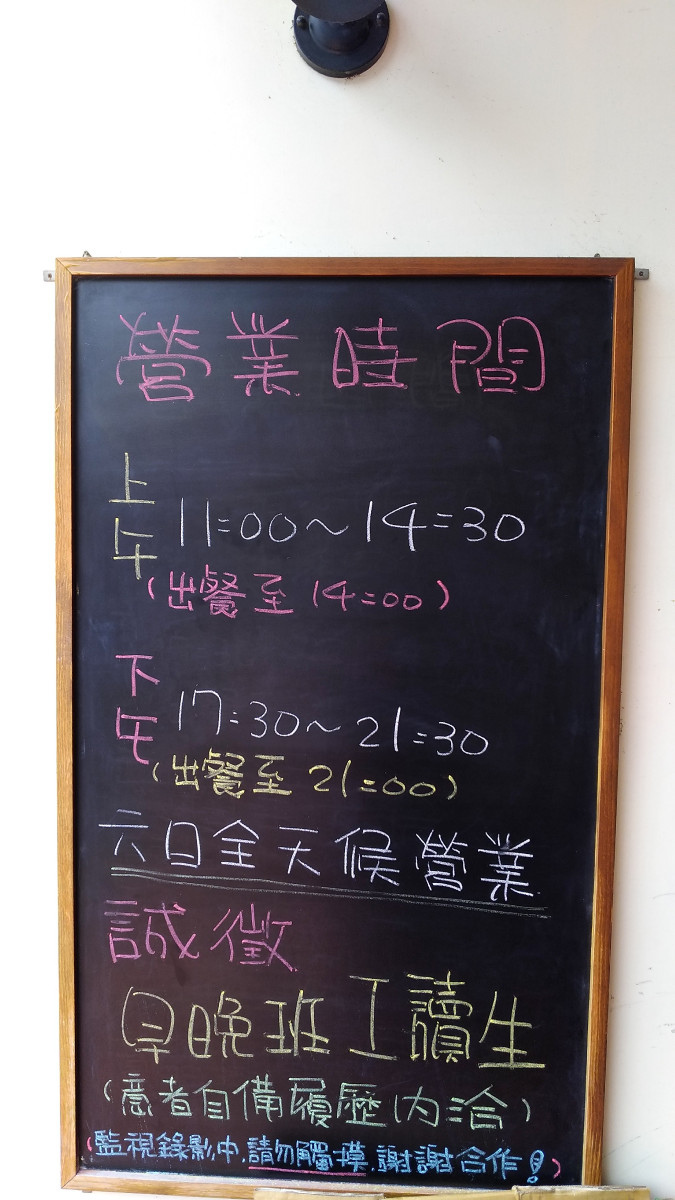 營業時間
上午 11:00~14:30
(出餐至14:00)
下午 17:30~21:30
(出餐至21:00)
六日全天候營業
誠徵
早晚班工讀生
(意者自備履歷內洽)
(監視錄影中.請勿觸摸.謝謝合作!)